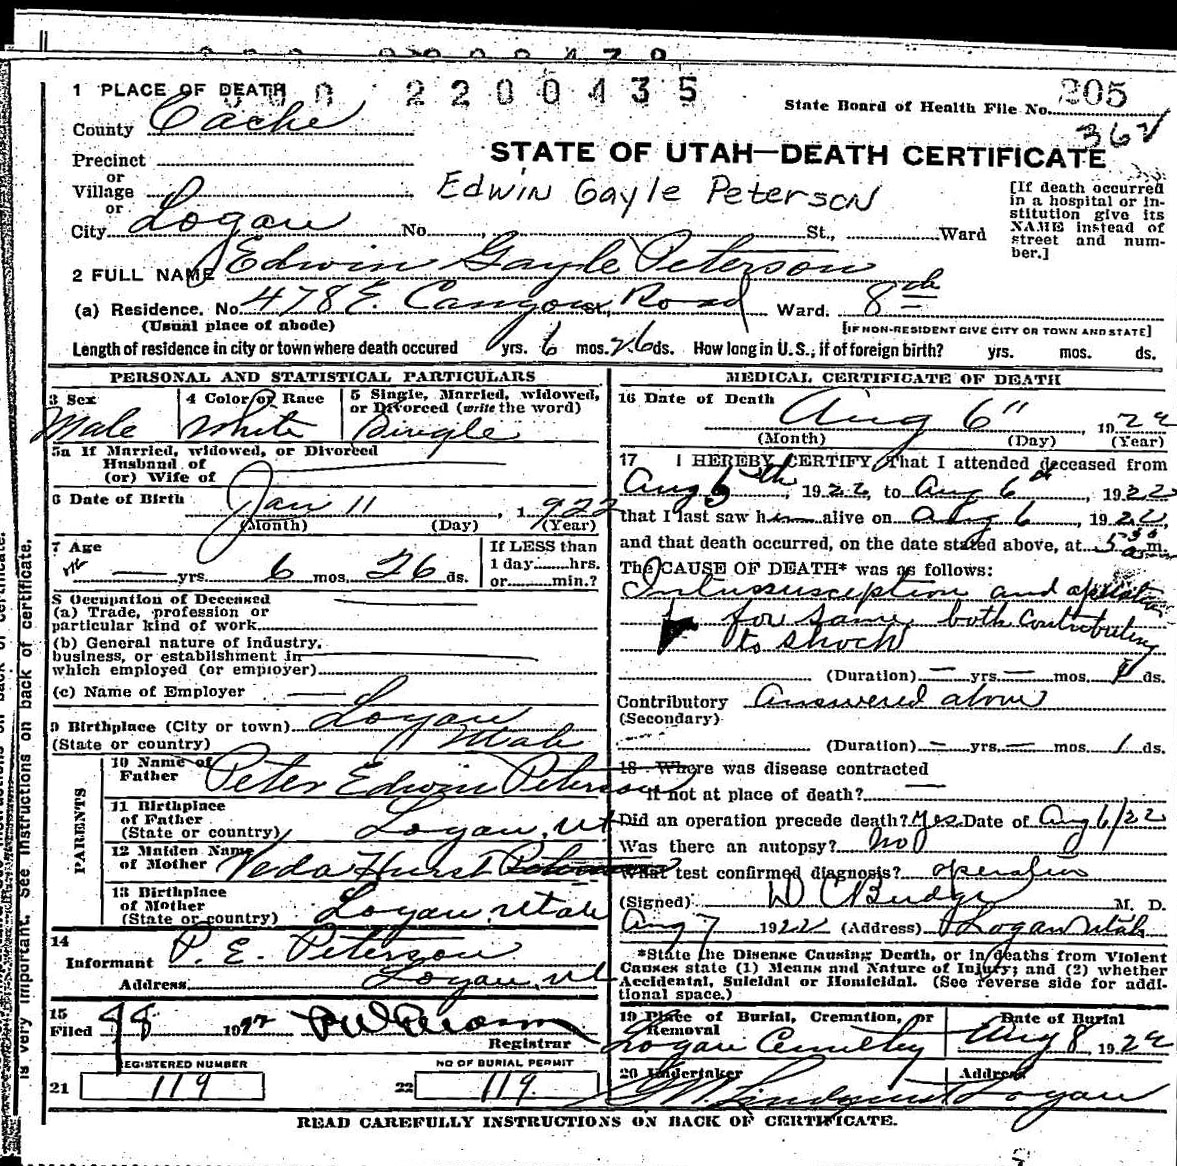 2200435
1 PLACE OF DEATH
State Board of Health File No. 205
County Cache
362
STATE OF UTAH—DEATH CERTIFICATE
Precinct
or
Village
or
Edwin Gayle Peterson
[If death occurred in a hospital or institution give its NAME instead of street and number.]
City Logan No. St., Ward
2 FULL NAME Edwin Gayle Peterson
(a) Residence. No. 478 E. Canyon St., Road Ward. 8th
(Usual place of abode) [IF NON-RESIDENT GIVE CITY OR TOWN AND STATE]
Length of residence in city or town where death occured yrs. 6 mos. 26 ds. How long in U.S., if of foreign birth? yrs. mos. ds.
PERSONAL AND STATISTICAL PARTICULARS
3 Sex Male
4 Color or Race White
5 Single, Married, widowed, or Divorced (write the word) Single
5a If Married, widowed, or Divorced
Husband of
(or) Wife of
6 Date of Birth Jan 11, 1922
(Month) (Day) (Year)
7 Age — yrs. 6 mos. 26 ds.
If LESS than
1 day......hrs.
or......min.?
8 Occupation of Deceased
(a) Trade, profession or
particular kind of work
(b) General nature of industry,
business, or establishment in
which employed (or employer)
(c) Name of Employer —
9 Birthplace (City or town) Logan
(State or country) Utah
PARENTS
10 Name of Father Peter Edwin Peterson
11 Birthplace of Father (State or country) Logan, Ut
12 Maiden Name of Mother Veda Hurst
13 Birthplace of Mother (State or country) Logan, Utah
14
Informant P. E. Peterson
Address Logan, Ut
15
Filed 1922
Registrar
REGISTERED NUMBER
21 119
NO OF BURIAL PERMIT
22 119
MEDICAL CERTIFICATE OF DEATH
16 Date of Death Aug 6" 1922
(Month) (Day) (Year)
17 I HEREBY CERTIFY That I attended deceased from
Aug 5th, 1922, to Aug 6th, 1922
that I last saw him alive on Aug 6, 1922,
and that death occurred, on the date stated above, at 5 30 a m.
The CAUSE OF DEATH* was as follows:
Intussusception and operation
for same both contributing
to shock
(Duration) — yrs. — mos. ds.
Contributory Answered above
(Secondary)
(Duration) — yrs. — mos. 1 ds.
18 Where was disease contracted
if not at place of death? —
Did an operation precede death? Yes Date of Aug 6/22
Was there an autopsy? No
What test confirmed diagnosis? operation
(Signed) W C Budge M. D.
Aug 7 1922 (Address) Logan Utah
*State the Disease Causing Death, or in deaths from Violent
Causes state (1) Means and Nature of Injury; and (2) whether
Accidental, Suicidal or Homicidal. (See reverse side for addi-
tional space.)
19 Place of Burial, Cremation, or Removal Date of Burial
Logan Cemetery Aug 8 1922
20 Undertaker Address
Lindquist Logan
READ CAREFULLY INSTRUCTIONS ON BACK OF CERTIFICATE.
is very important. See instructions on back of certificate.